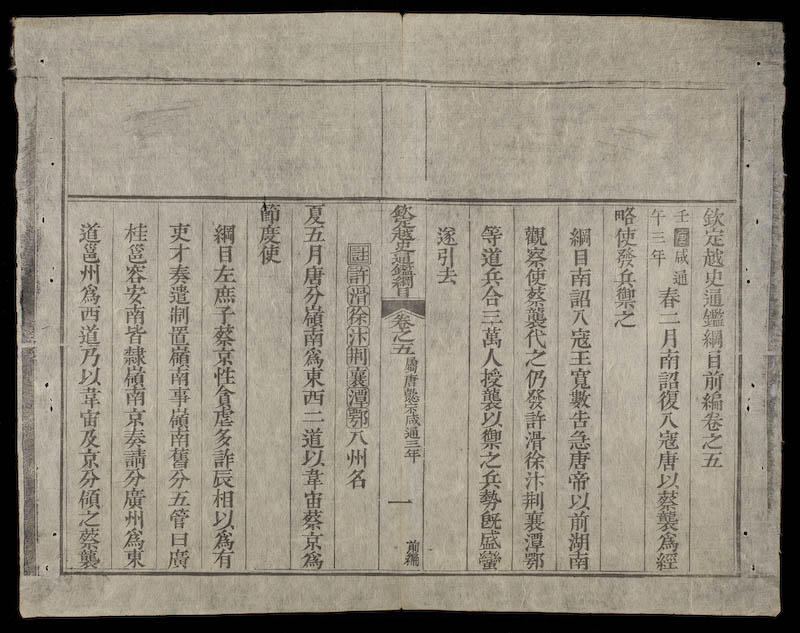 欽定越史通鑑綱目前編卷之五
壬午唐咸通三年春二月南詔復入寇唐以蔡襲為經
略使發兵禦之
綱目南詔入寇王寬數告急唐帝以前湖南
觀察使蔡襲代之仍發許滑徐汴荆襄潭鄂
等道兵合三萬人授襲以禦之兵勢旣盛蠻
遂引去
欽定越史通鑑綱目 卷之五 屬唐懿宗咸通三年 一 前編
註許滑徐汴荆襄潭鄂八州名
夏五月唐分嶺南為東西二道以韋宙蔡京為
節度使
綱目左庶子蔡京性貪虐多詐辰相以為有
吏才奏遣制置嶺南事嶺南舊分五管曰廣
桂邕容安南皆隸嶺南京奏請分廣州為東
道邕州為西道乃以韋宙及京分領之蔡襲